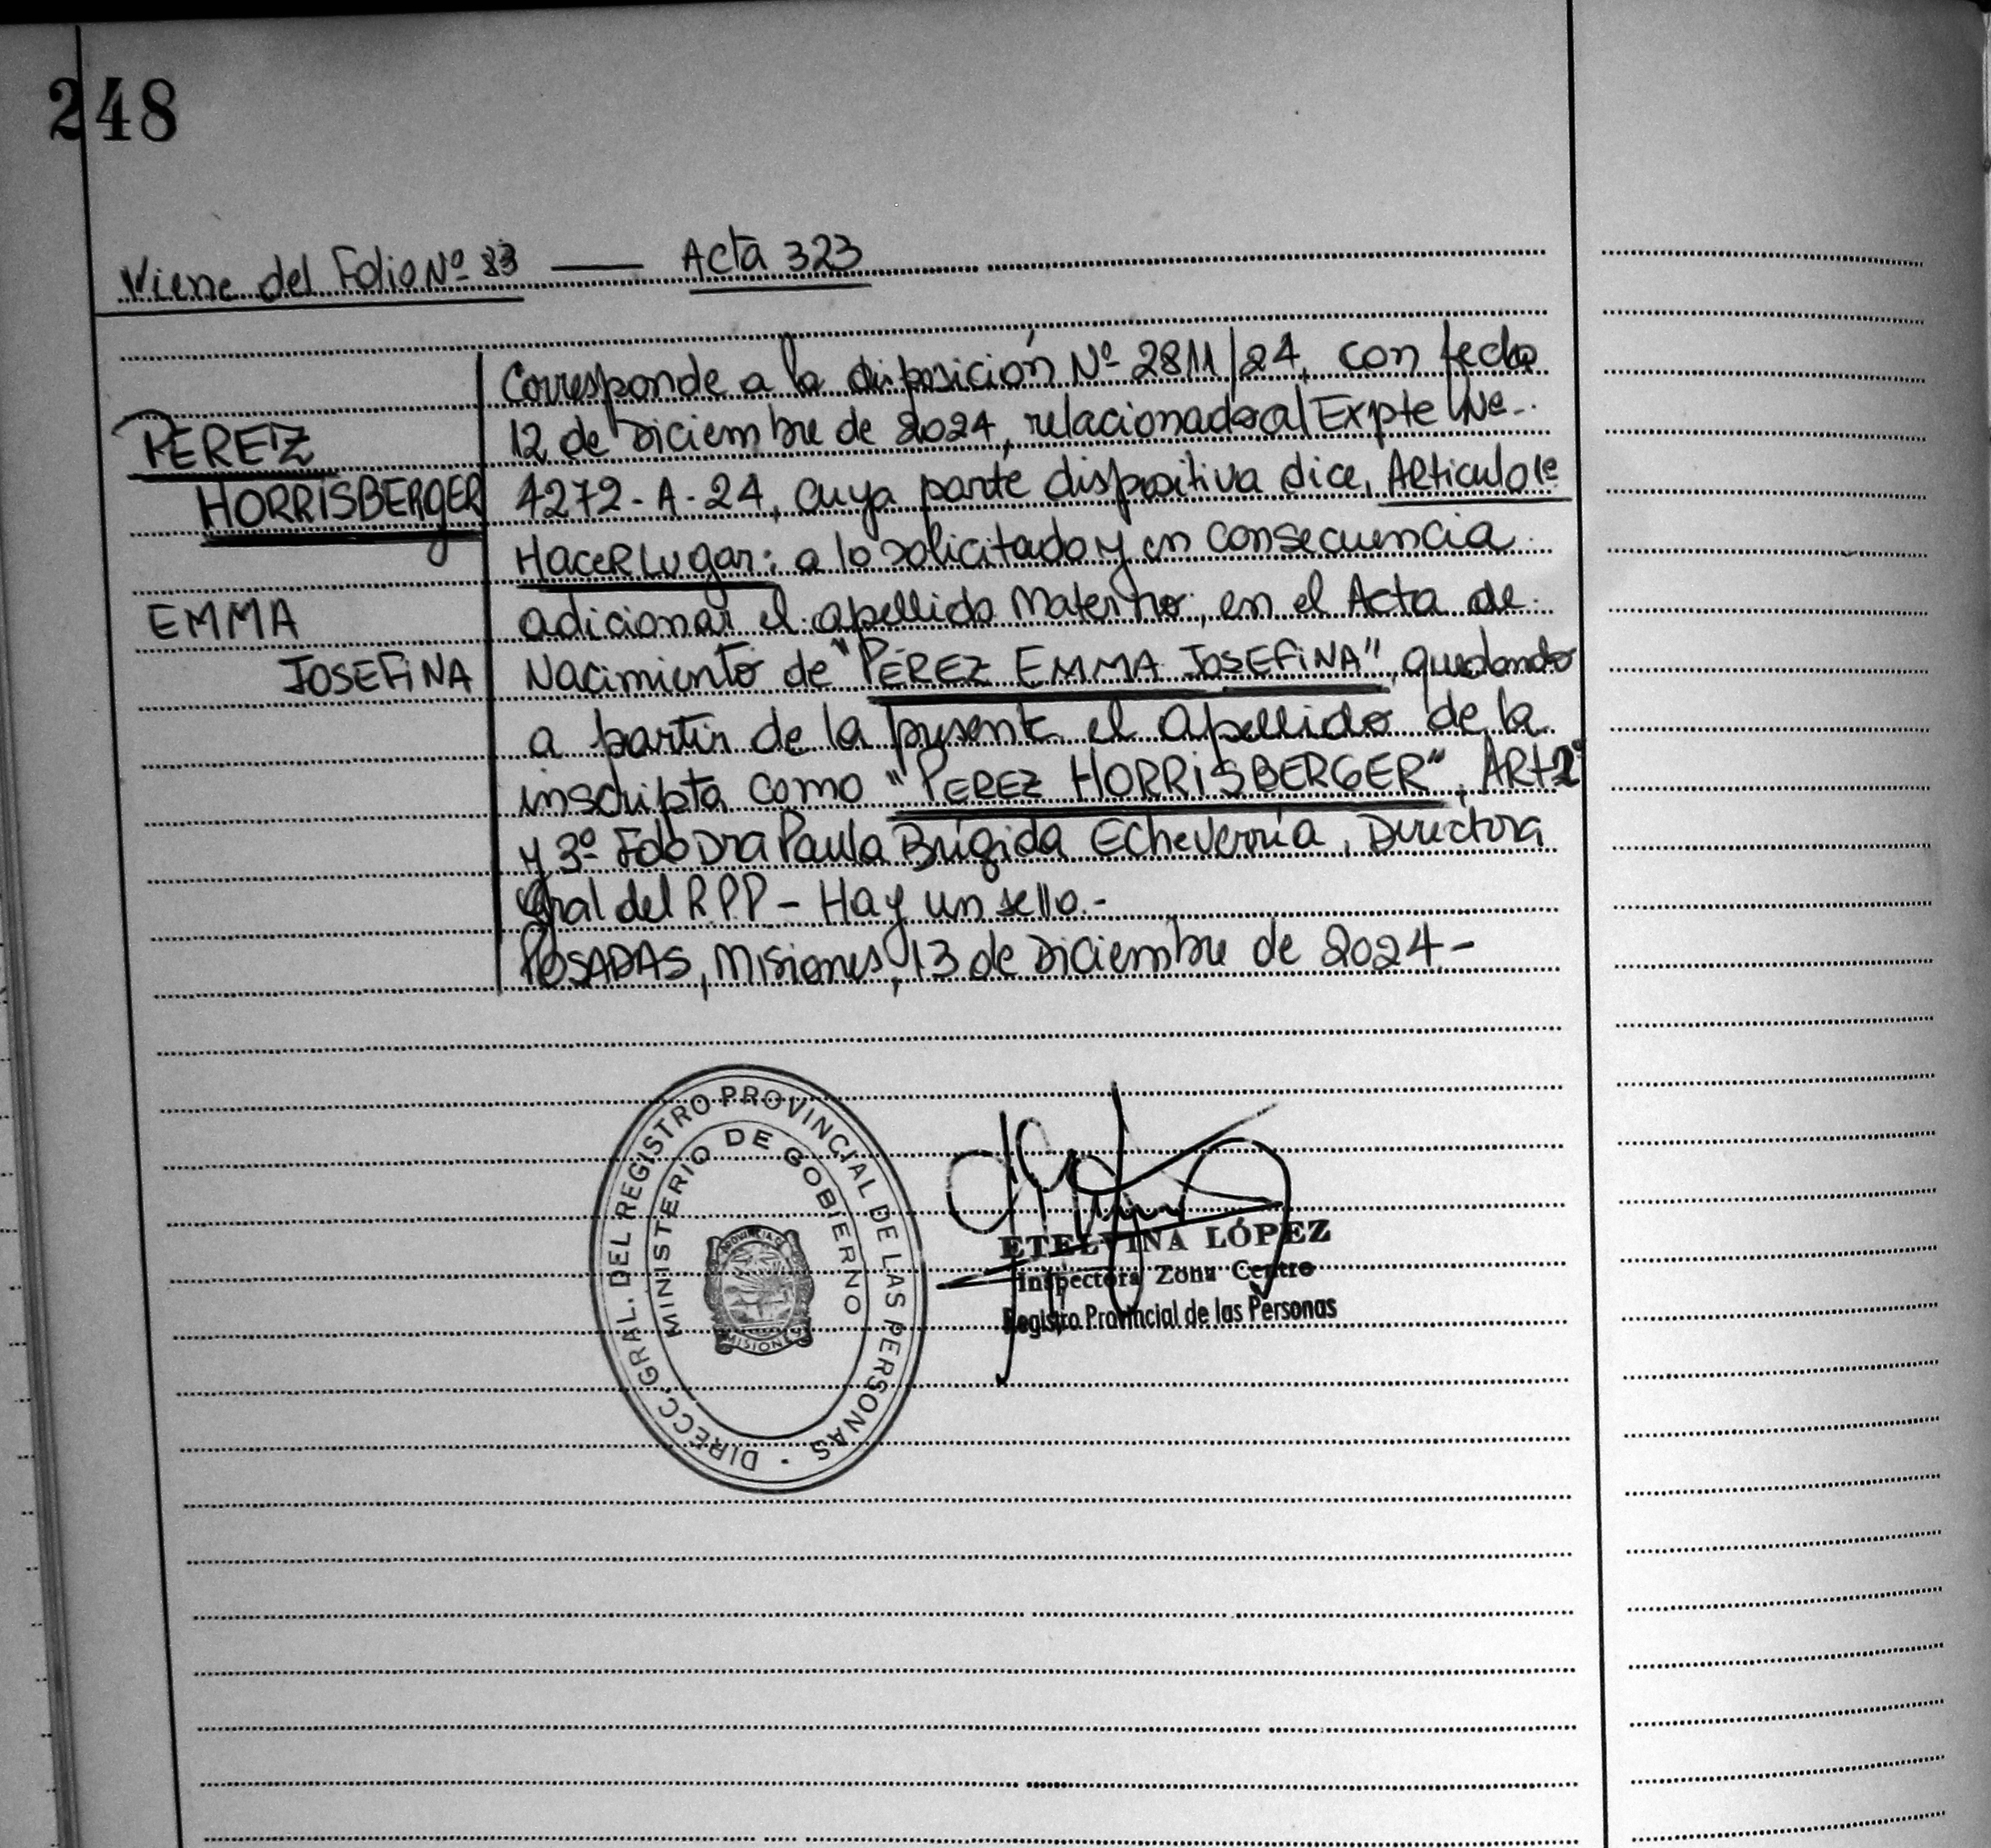 248
Viene del Folio Nº 83 — Acta 323
Corresponde a la disposición Nº 2811/24, con fecha
PEREZ
12 de Diciembre de 2024, relacionado al Expte Nº
HORRISBERGER
4272-A-24, cuya parte dispositiva dice, Articulo 1º
Hacer Lugar: a lo solicitado y en consecuencia
EMMA
adicionar el apellido Materno, en el Acta de
JOSEFINA
Nacimiento de "PÉREZ EMMA JOSEFINA", quedando
a partir de la presente el apellido de la
inscripta como "PEREZ HORRISBERGER", ART 2º
y 3º Fdo Dra Paula Brígida Echeverría, Directora
Gral del R.P.P - Hay un sello.-
POSADAS, Misiones, 13 de Diciembre de 2024-
DIRECC. GRAL. DEL REGISTRO PROVINCIAL DE LAS PERSONAS
MINISTERIO DE GOBIERNO
PROVINCIA D
MISIONES
ETELVINA LÓPEZ
Inspectora Zona Centro
Registro Provincial de las Personas